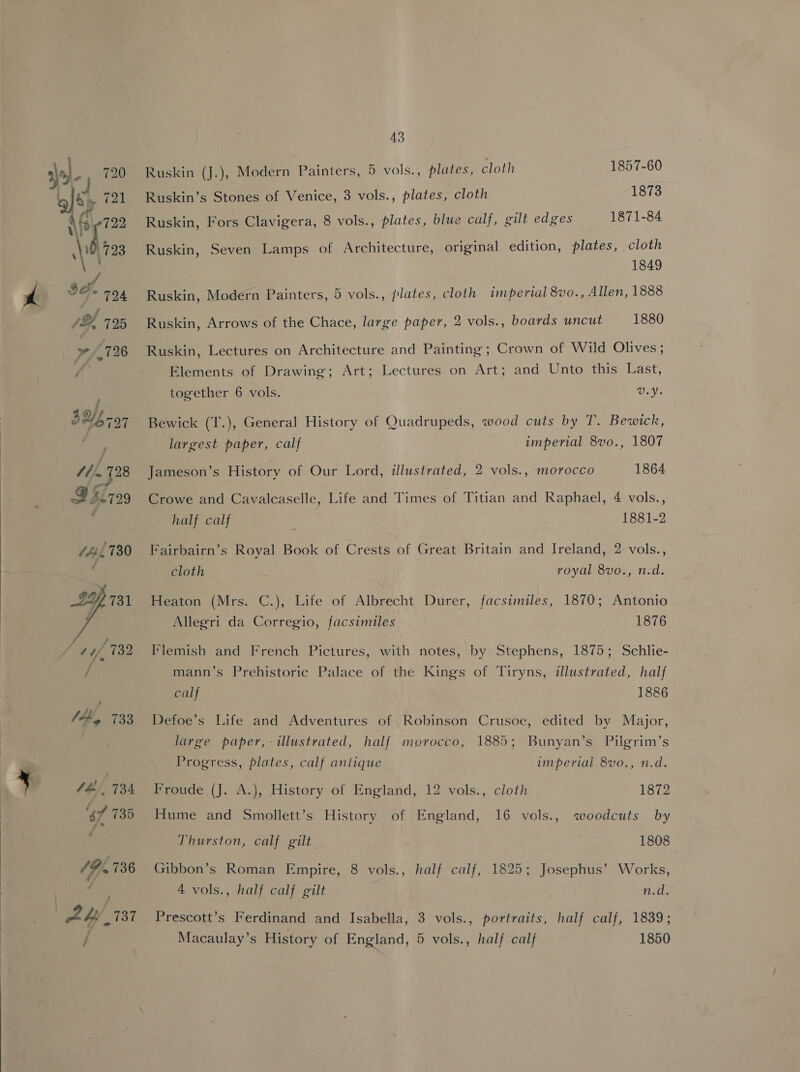 43
720 Ruskin (J.), Modern Painters, 5 vols., plates, cloth 1857-60
721 Ruskin's Stones of Venice, 3 vols., plates, cloth 1873
722 Ruskin, Fors Clavigera, 8 vols., plates, blue calf, gilt edges 1871-84
723 Ruskin, Seven Lamps of Architecture, original edition, plates, cloth
1849
724 Ruskin, Modern Painters, 5 vols., plates, cloth imperial 8vo., Allen, 1888
725 Ruskin, Arrows of the Chace, large paper, 2 vols., boards uncut 1880
726 Ruskin, Lectures on Architecture and Painting; Crown of Wild Olives;
Elements of Drawing; Art; Lectures on Art; and Unto this Last,
together 6 vols. v.y.
727 Bewick (T.), General History of Quadrupeds, wood cuts by T. Bewick,
largest paper, calf imperial 8vo., 1807
728 Jameson's History of Our Lord, illustrated, 2 vols., morocco 1864
729 Crowe and Cavalcaselle, Life and Times of Titian and Raphael, 4 vols.,
half calf 1881-2
730 Fairbairn's Royal Book of Crests of Great Britain and Ireland, 2 vols.,
cloth royal 8vo., n.d.
731 Heaton (Mrs. C.), Life of Albrecht Durer, facsimiles, 1870; Antonio
Allegri da Corregio, facsimiles 1876
732 Flemish and French Pictures, with notes, by Stephens, 1875; Schlie-
mann's Prehistoric Palace of the Kings of Tiryns, illustrated, half
calf 1886
733 Defoe's Life and Adventures of Robinson Crusoe, edited by Major,
large paper, illustrated, half morocco, 1885; Bunyan's Pilgrim's
Progress, plates, calf antique imperial 8vo., n.d.
734 Froude (J. A.), History of England, 12 vols., cloth 1872
735 Hume and Smollett's History of England, 16 vols., woodcuts by
Thurston, calf gilt 1808
736 Gibbon's Roman Empire, 8 vols., half calf, 1825; Josephus' Works,
4 vols., half calf gilt n.d.
737 Prescott's Ferdinand and Isabella, 3 vols., portraits, half calf, 1839;
Macaulay's History of England, 5 vols., half calf 1850